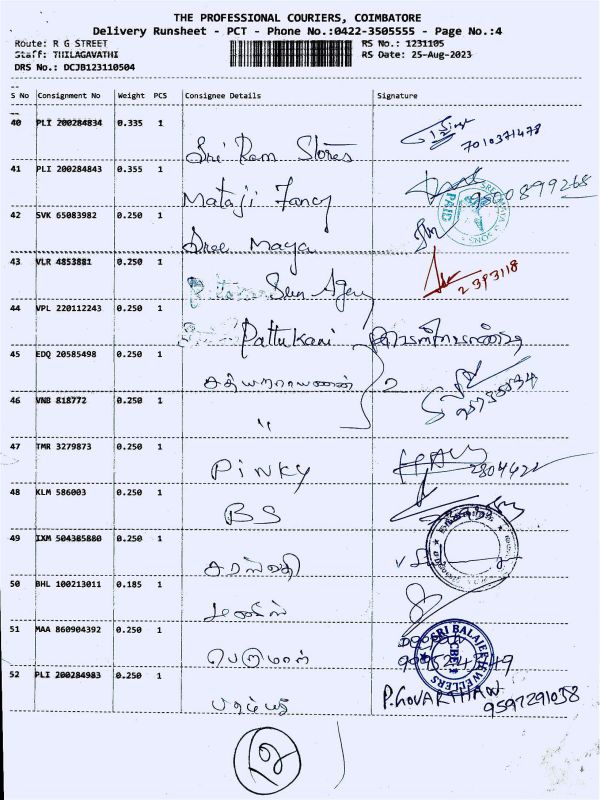 THE PROFESSIONAL COURIERS, COIMBATORE
Delivery Runsheet - PCT - Phone No.:0422-3505555 - Page No.:4
Route: R G STREET RS No.: 1231105
Staff: THILAGAVATHI RS Date: 25-Aug-2023
DRS No.: DCJB123110504
S No Consignment No Weight PCS Consignee Details Signature
40 PLI 200284834 0.335 1
Sri Ram Stores 7010371478
41 PLI 200284843 0.355 1
Mataji Fancy 9500899268
PAID
42 SVK 65083982 0.250 1
Sree Maya
43 VLR 4853881 0.250 1
Sun Agency 2393118
44 VPL 220112243 0.250 1
Pattukani
45 EDQ 20585498 0.250 1
சத்தியநாராயணன் 2
46 VNB 818772 0.250 1
"
47 TMR 3279873 0.250 1
PINKY 2804422
48 KLM 586003 0.250 1
BS
49 IXM 504385880 0.250 1
சரஸ்வதி
50 BHL 100213011 0.185 1
51 MAA 860904392 0.250 1
பெருமாள்
SRI BALAJEE JEWELLERS
CBE
52 PLI 200284983 0.250 1
P. GOVARTHAN 9597291038